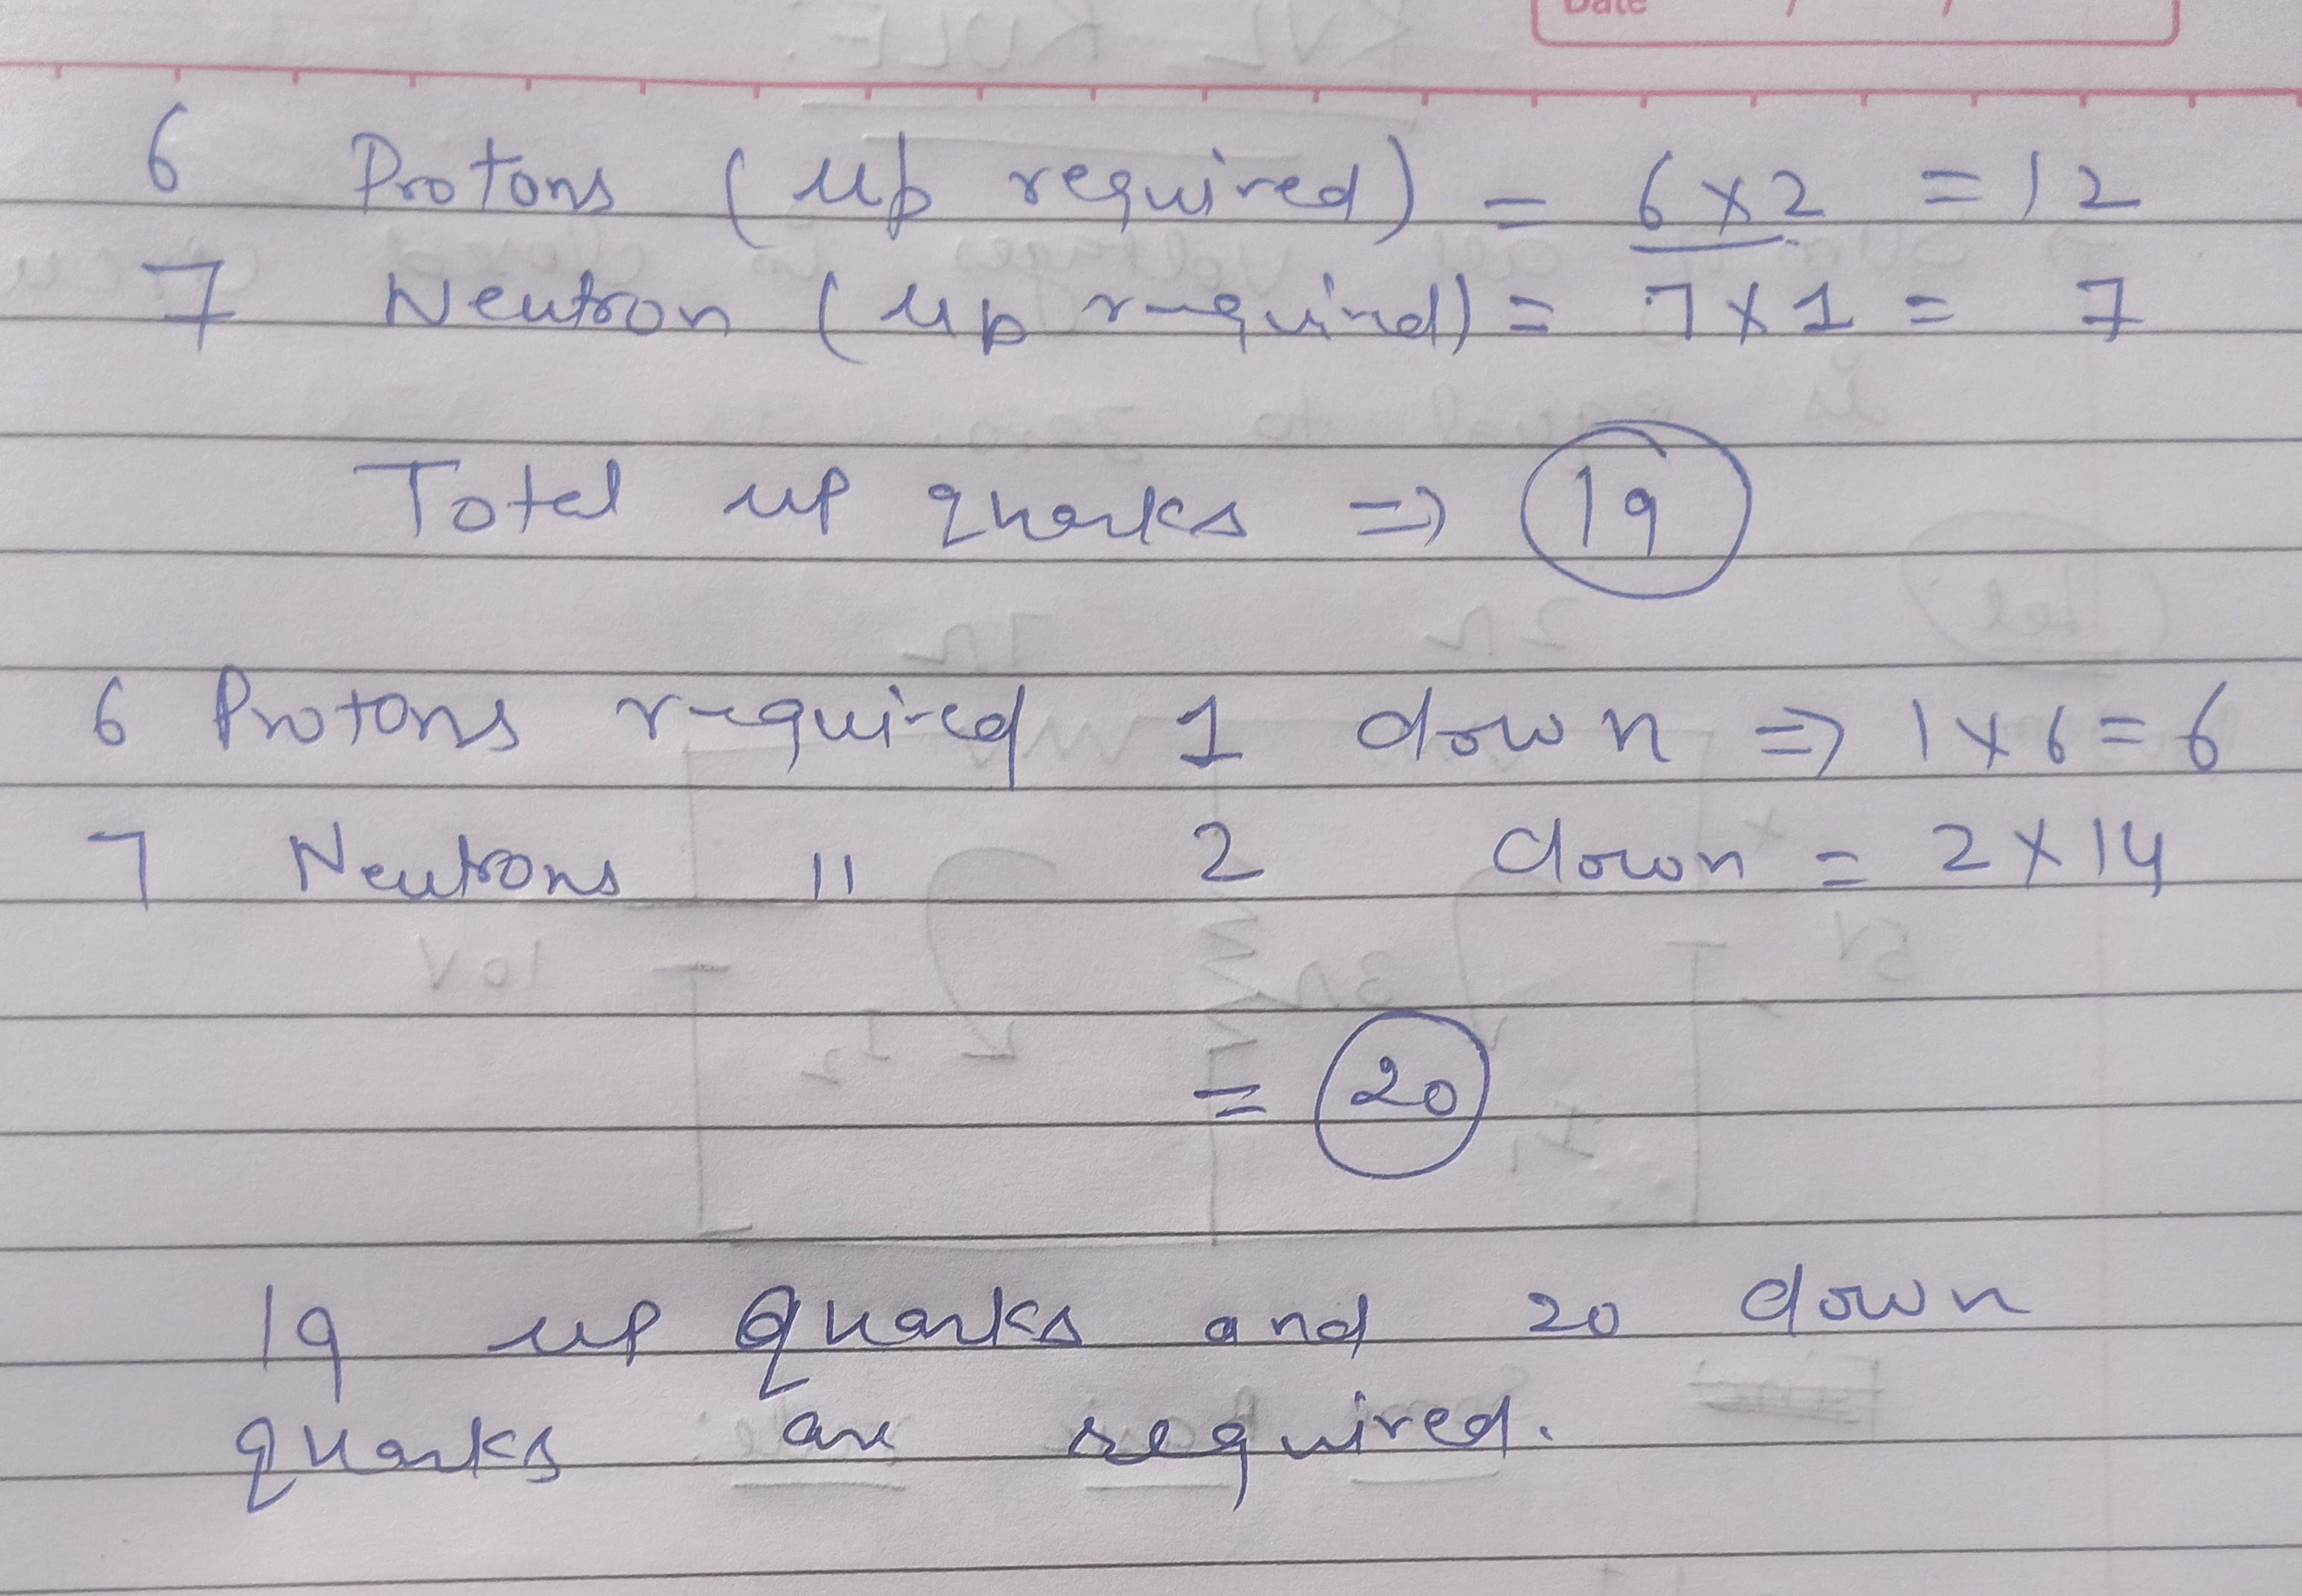 Date / /
6 Protons (up required) = 6 x 2 = 12
7 Neutron (up required) = 7 x 1 = 7
Total up quarks => 19
6 Protons required 1 down => 1 x 6 = 6
7 Neutrons 11 2 down = 2 x 14
= 20
19 up quarks and 20 down
quarks are required.